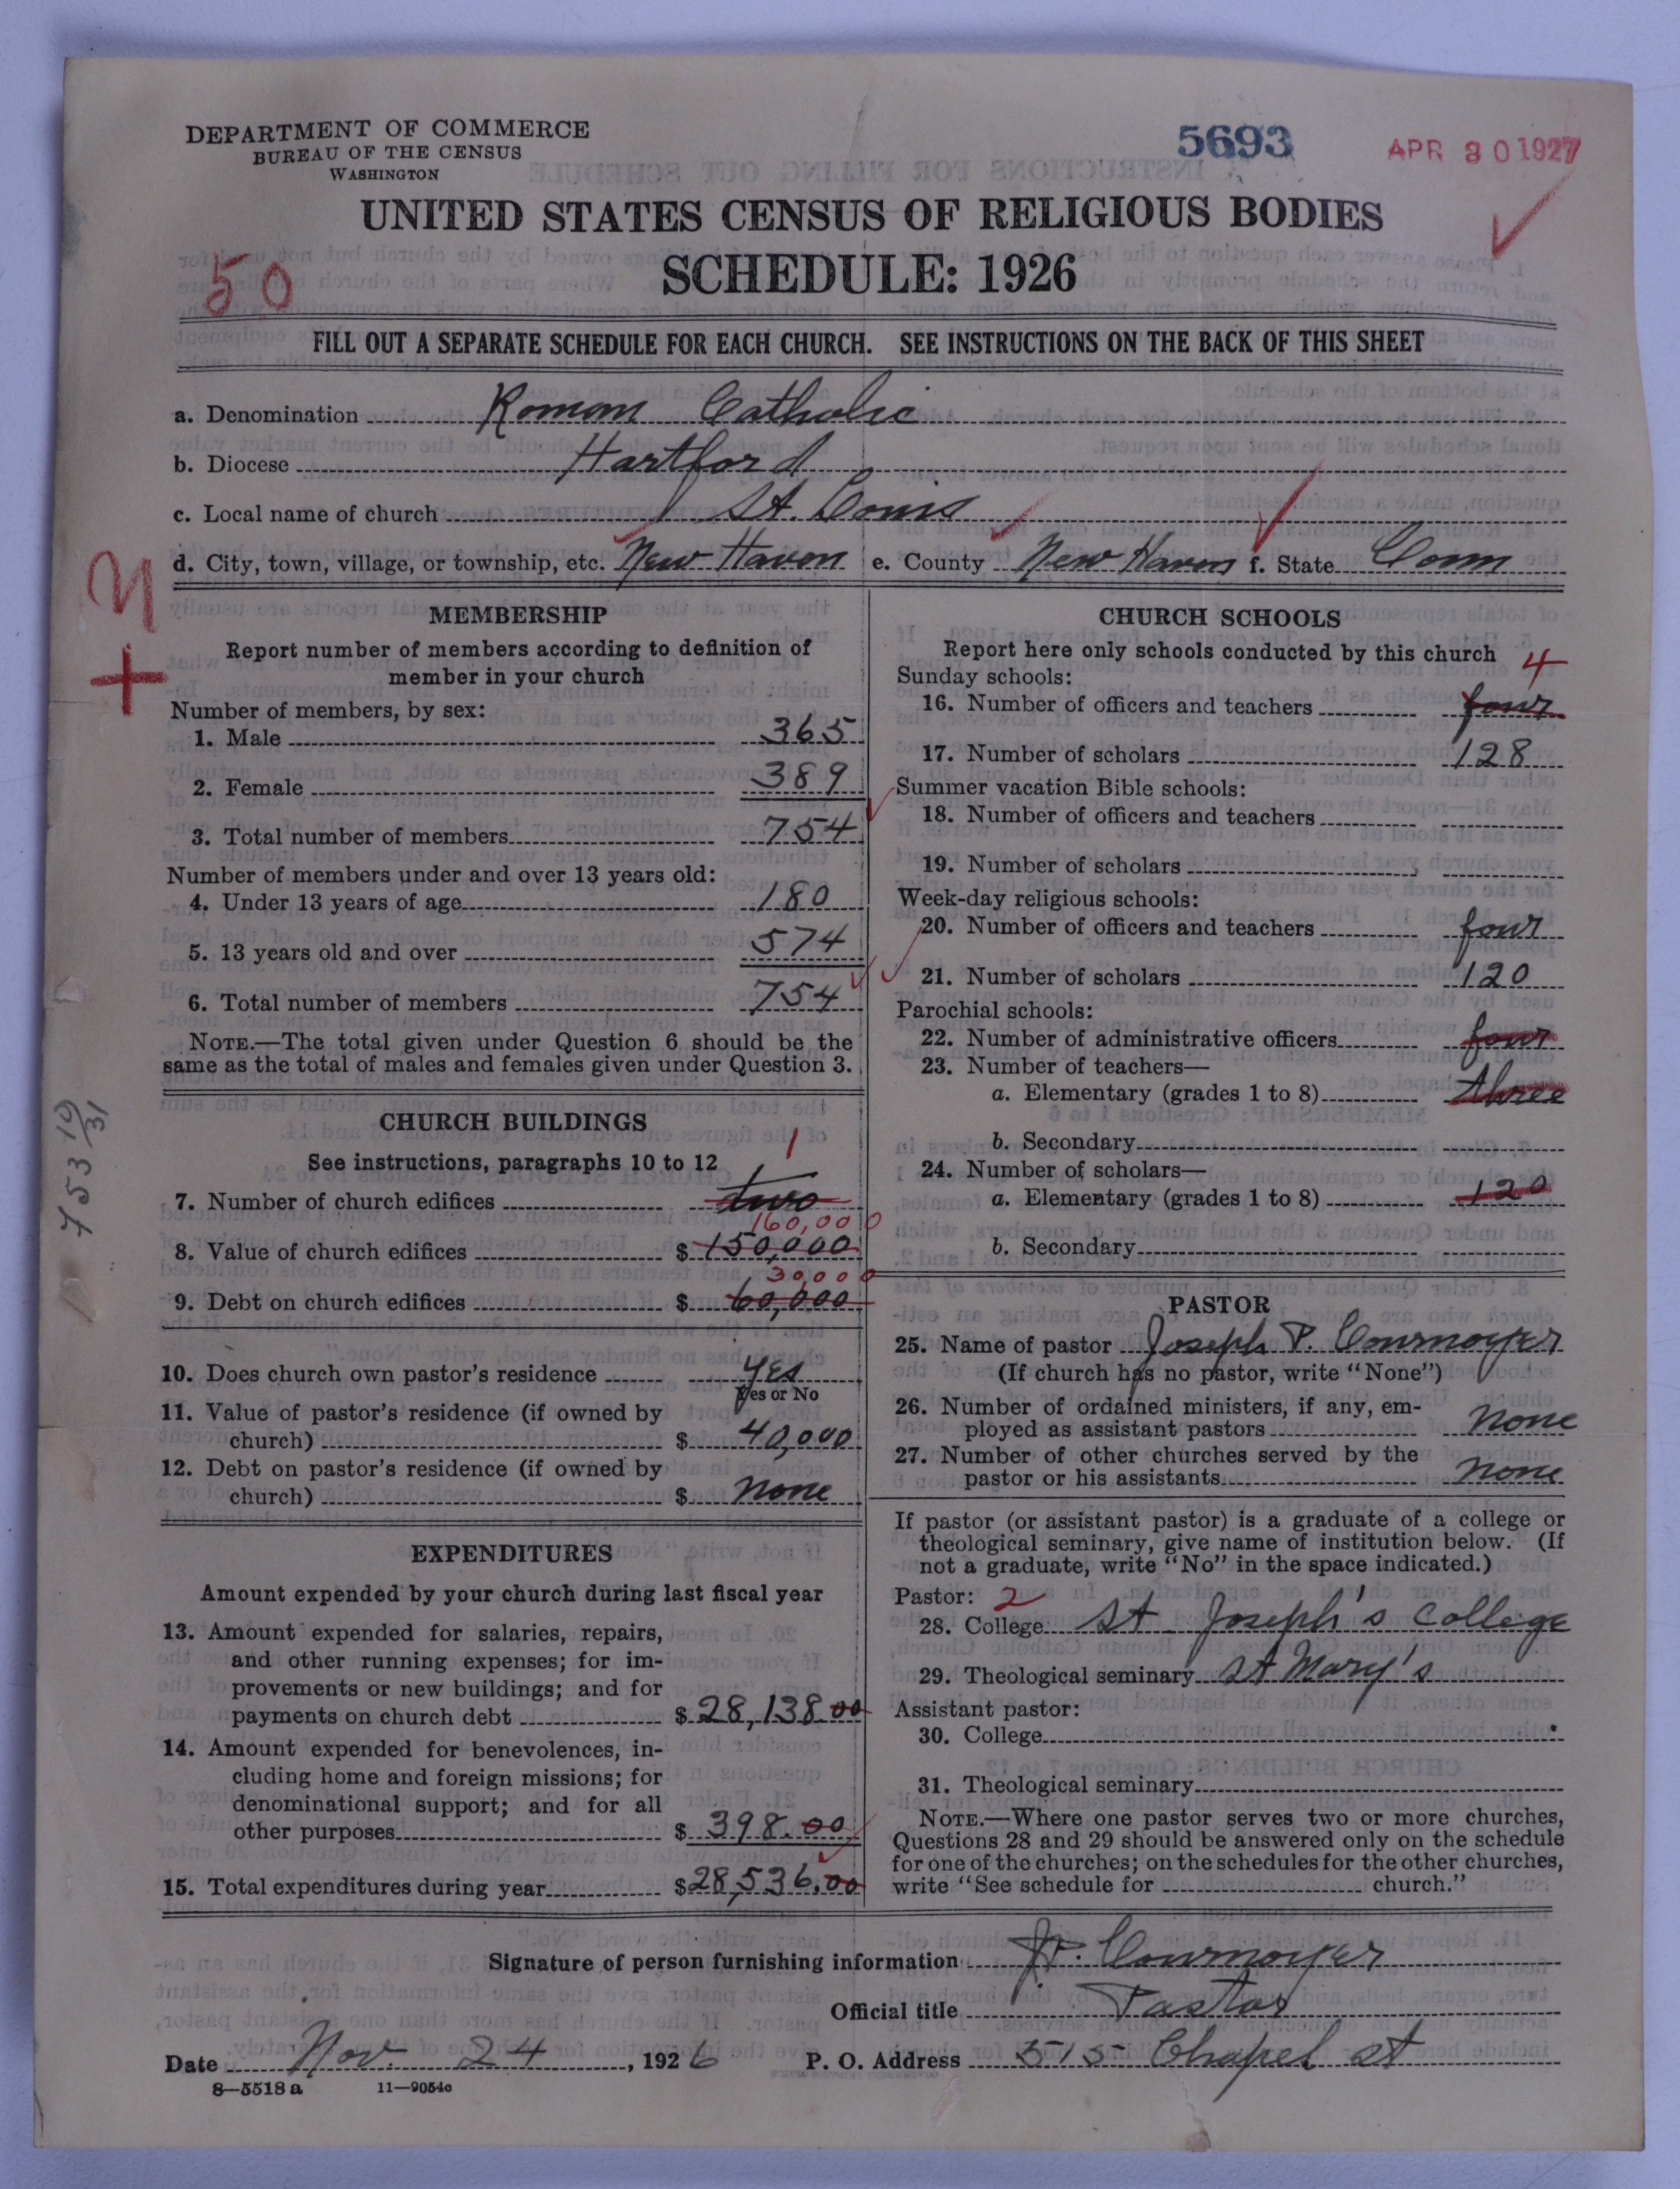 DEPARTMENT OF COMMERCE
BUREAU OF THE CENSUS
WASHINGTON
5693
APR 30 1927
UNITED STATES CENSUS OF RELIGIOUS BODIES
SCHEDULE: 1926
50
FILL OUT A SEPARATE SCHEDULE FOR EACH CHURCH. SEE INSTRUCTIONS ON THE BACK OF THIS SHEET
a. Denomination Roman Catholic
b. Diocese Hartford
c. Local name of church St. Louis
d. City, town, village, or township, etc. New Haven e. County New Haven f. State Conn
MEMBERSHIP
Report number of members according to definition of
member in your church
Number of members, by sex:
1. Male 365
2. Female 389
3. Total number of members 754
Number of members under and over 13 years old:
4. Under 13 years of age 180
5. 13 years old and over 574
6. Total number of members 754
NOTE.—The total given under Question 6 should be the
same as the total of males and females given under Question 3.
CHURCH BUILDINGS
See instructions, paragraphs 10 to 12
1
7. Number of church edifices two
160,000
8. Value of church edifices $ 150,000
30,000
9. Debt on church edifices $ 60,000
10. Does church own pastor's residence yes
Yes or No
11. Value of pastor's residence (if owned by
church) $ 40,000
12. Debt on pastor's residence (if owned by
church) $ none
EXPENDITURES
Amount expended by your church during last fiscal year
13. Amount expended for salaries, repairs,
and other running expenses; for im-
provements or new buildings; and for
payments on church debt $ 28,138.00
14. Amount expended for benevolences, in-
cluding home and foreign missions; for
denominational support; and for all
other purposes $ 398.00
15. Total expenditures during year $ 28,536.00
CHURCH SCHOOLS
Report here only schools conducted by this church
4
Sunday schools:
16. Number of officers and teachers four
17. Number of scholars 128
Summer vacation Bible schools:
18. Number of officers and teachers
19. Number of scholars
Week-day religious schools:
20. Number of officers and teachers four
21. Number of scholars 120
Parochial schools:
22. Number of administrative officers four
23. Number of teachers—
a. Elementary (grades 1 to 8) three
b. Secondary
24. Number of scholars—
a. Elementary (grades 1 to 8) 120
b. Secondary
PASTOR
25. Name of pastor Joseph P. Cournoyer
(If church has no pastor, write "None")
26. Number of ordained ministers, if any, em-
ployed as assistant pastors none
27. Number of other churches served by the
pastor or his assistants none
If pastor (or assistant pastor) is a graduate of a college or
theological seminary, give name of institution below. (If
not a graduate, write "No" in the space indicated.)
Pastor: 2
28. College St Joseph's College
29. Theological seminary St Mary's
Assistant pastor:
30. College
31. Theological seminary
NOTE.—Where one pastor serves two or more churches,
Questions 28 and 29 should be answered only on the schedule
for one of the churches; on the schedules for the other churches,
write "See schedule for church."
Signature of person furnishing information J.P. Cournoyer
Official title Pastor
Date Nov. 24, 1926 P. O. Address 515 Chapel St
8—5518a 11—9054c